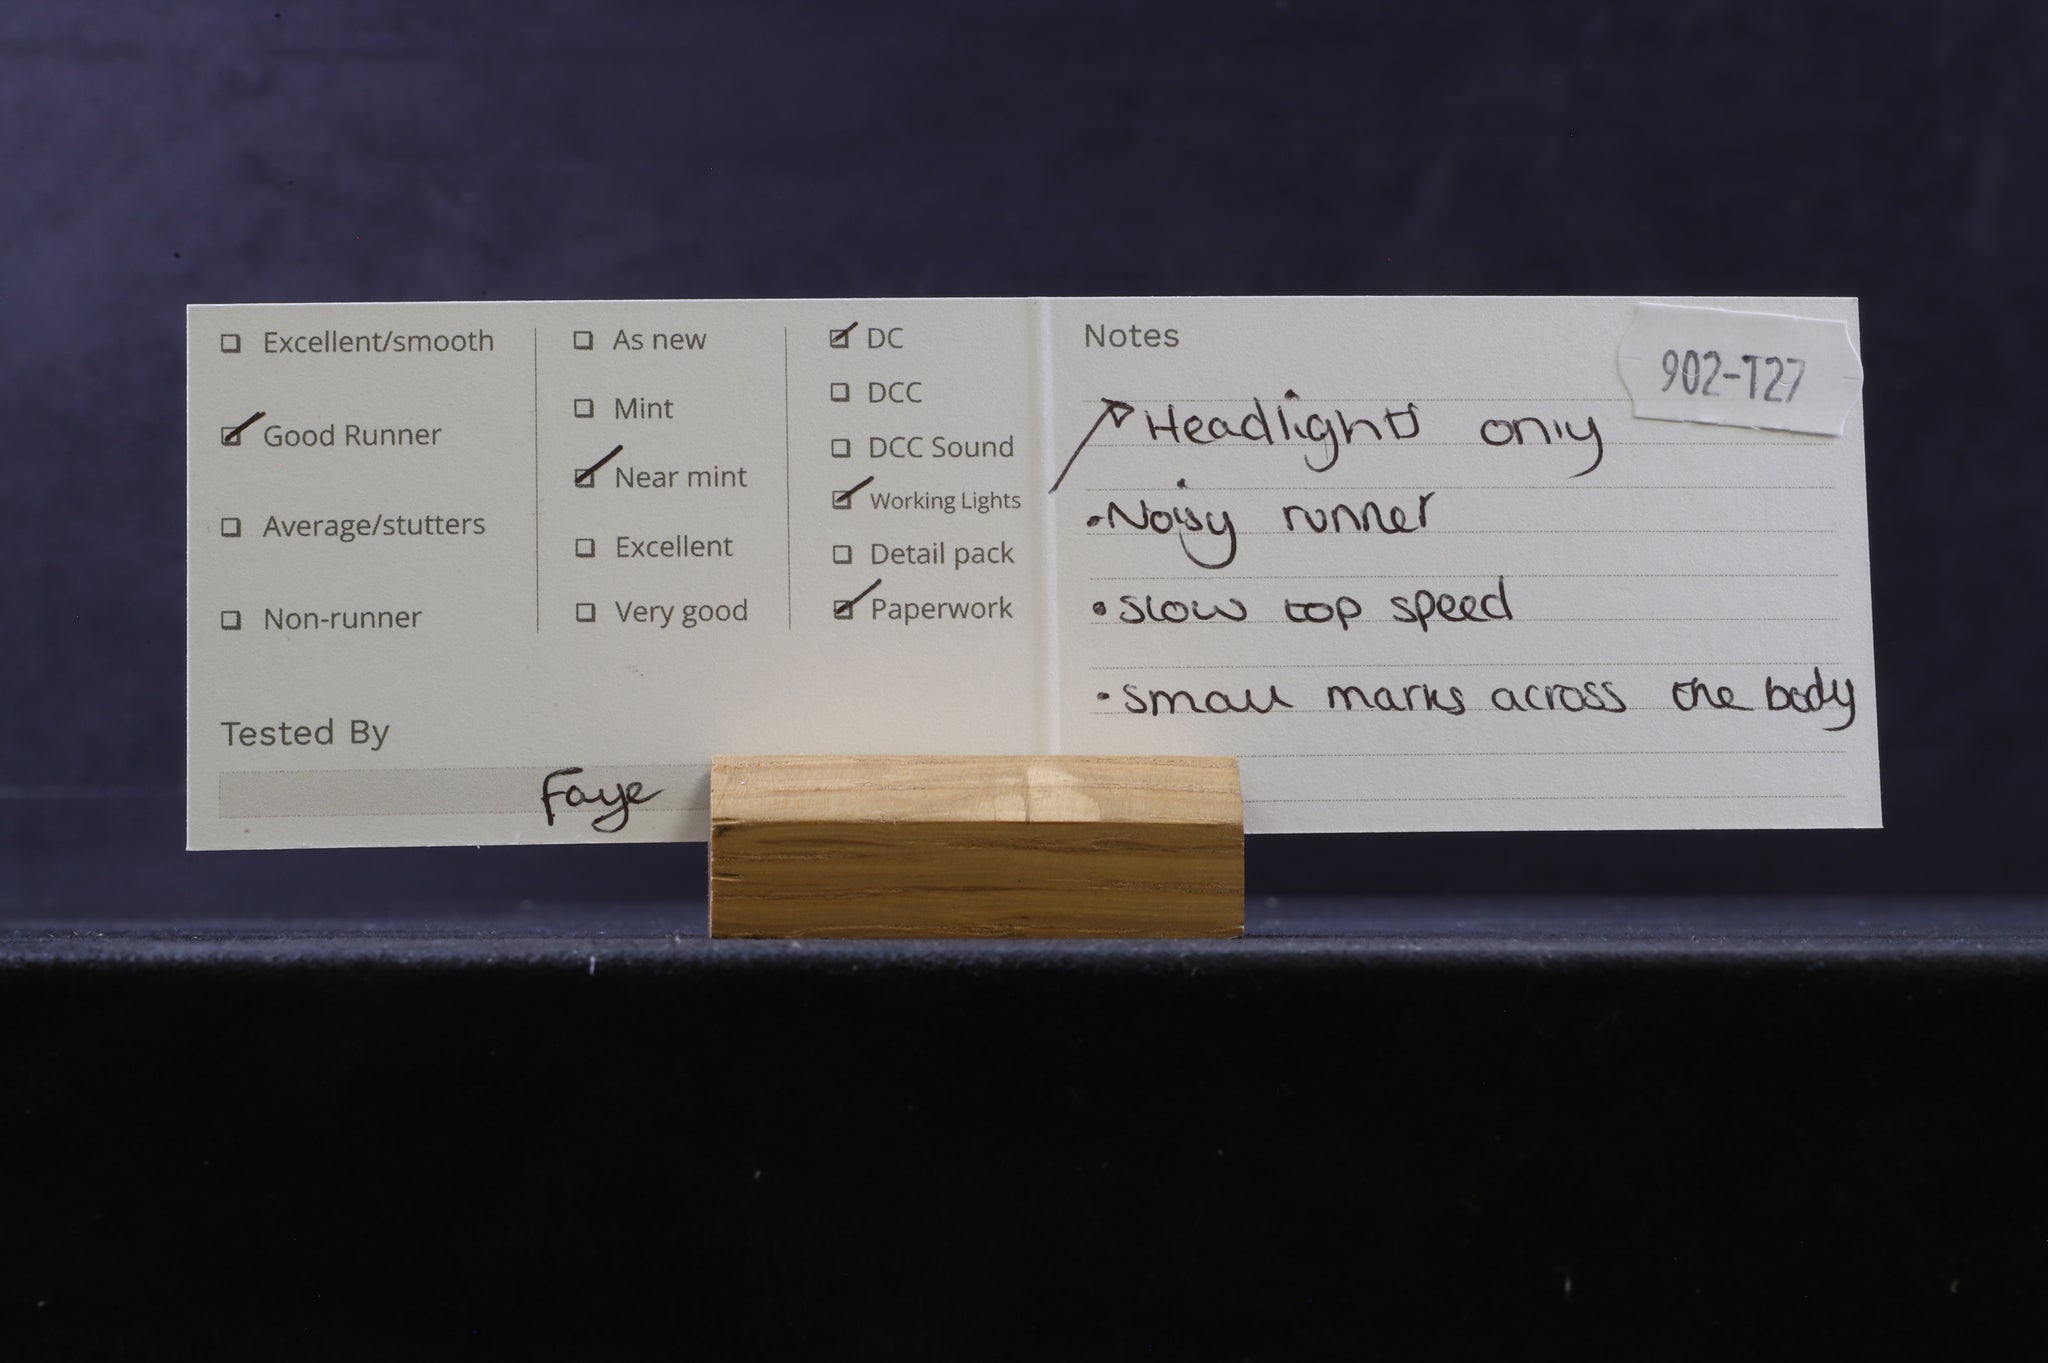 Excellent/smooth
Good Runner
Average/stutters
Non-runner
As new
Mint
Near mint
Excellent
Very good
DC
DCC
DCC Sound
Working Lights
Detail pack
Paperwork
Tested By
Faye
Notes
902-T27
Headlights only
•Noisy runner
•slow top speed
•small marks across the body